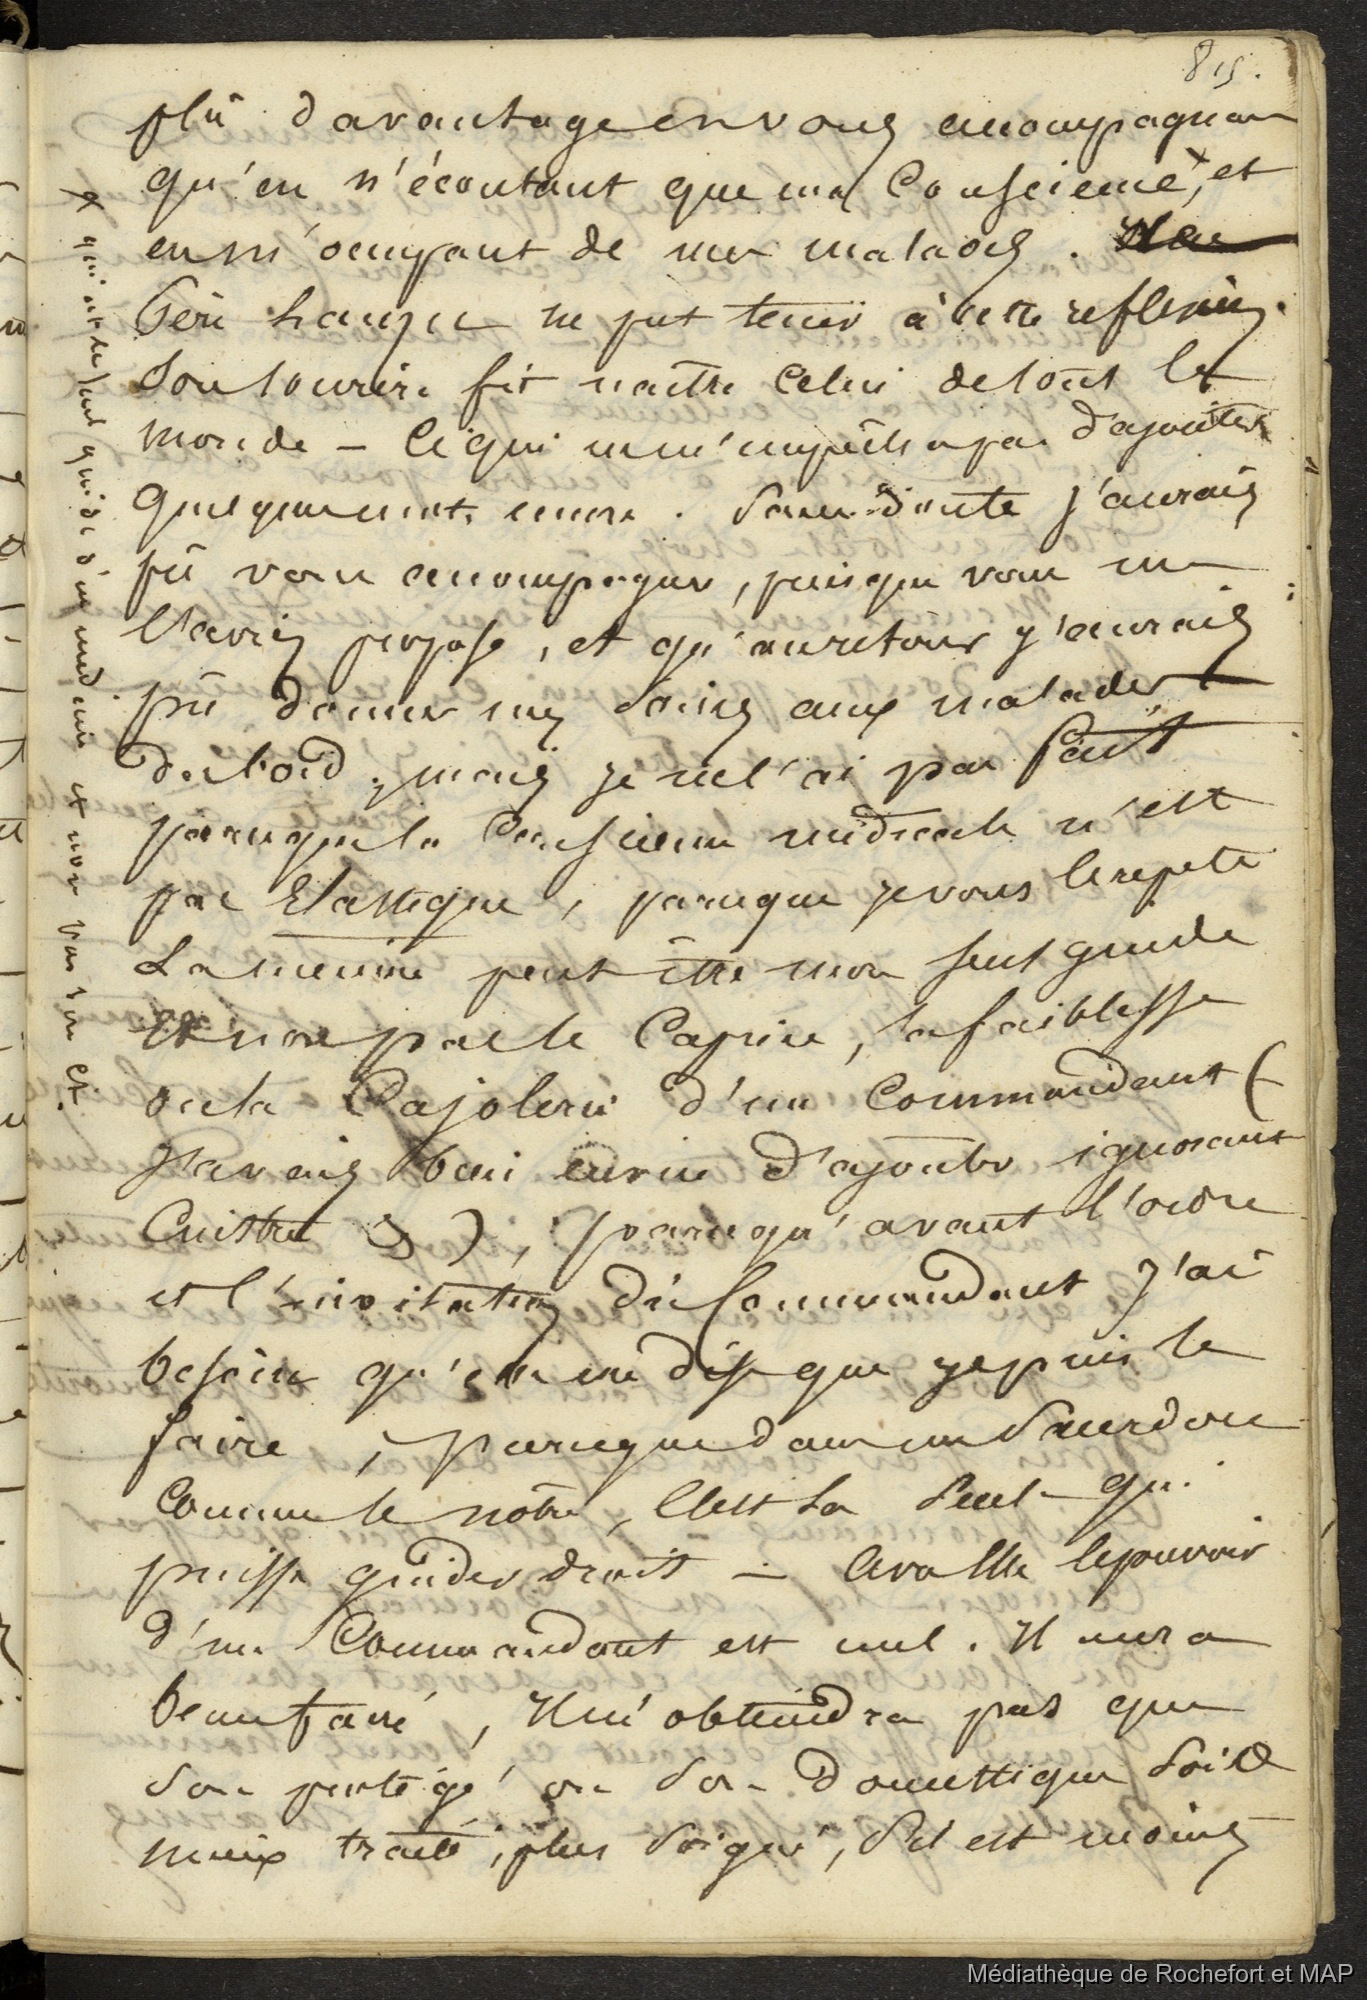 815.
plû d'avantage en vous accompagnant
qu'en n'écoutant que ma Conscience x, et
en m'occupant de mes malades.
Père ne put tenir à cette reflexion.
Son sourire fit naître celui de tout le
monde — Ce qui ne m'empêcha pas d'ajouter
quelques mots encore. Sans doute j'aurais
pû vous accompagner, puisque vous me
l'aviez proposé, et qu'au retour j'aurais
pû donner mes soins aux malades
du bord, mais je ne l'ai pas fait
parceque la Conscience médicale n'est
pas Elastique, parceque je vous le repete
La mienne peut être mon seul guide
Et non pas le Caprice, la faiblesse
ou la Cajolerie d'un Commandant (
J'avais bien envie d'ajouter ignorant
Cuistre &), parcequ'avant l'ordre
et l'invitation du Commandant J'ai
besoin qu'elle me dise que je puis le
faire, parceque dans un Sacerdoce
Comme le nôtre, C'est la Seule qui
puisse guider droit — Avec Elle le pouvoir
d'un Commandant est nul. Il aura
beau faire, Il n'obtiendra pas que
son protégé ou son domestique soit
mieux traité, plus soigné, S'il est moins
x qui est le seul guide d'un medecin et non pas
Médiathèque de Rochefort et MAP